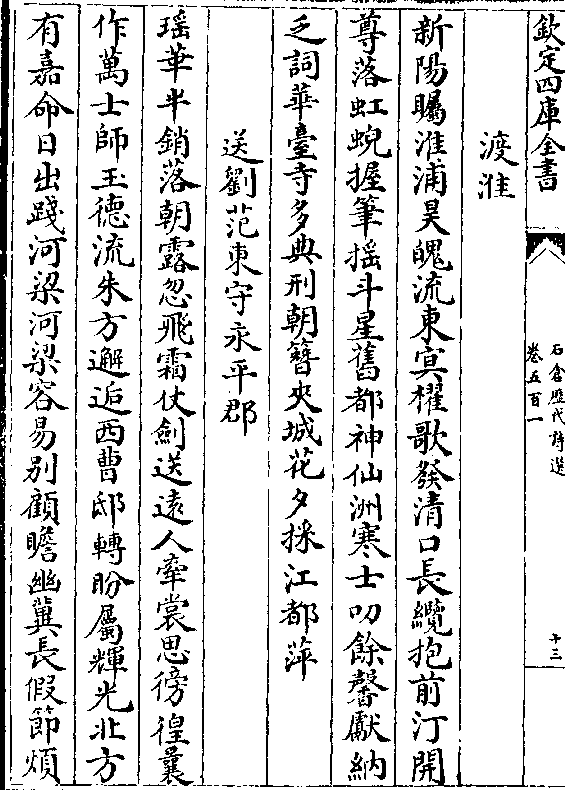 欽定四庫全書
石倉歷代詩選
卷五百一
十三
渡淮
新陽矚淮浦昊魄流東冥櫂歌發清口長纜抱前汀開
尊落虹蜺握筆搖斗星舊都神仙洲寒士叨餘馨獻納
乏詞華臺寺多典刑朝簪夾城花夕採江都萍
送劉范東守永平郡
瑶華半銷落朝露忽飛霜仗劍送遠人牽裳思徬徨曩
作萬士師玉德流朱方邂逅西曹邸轉盼屬輝光北方
有嘉命日出踐河梁河梁容易别顧瞻幽冀長假節煩